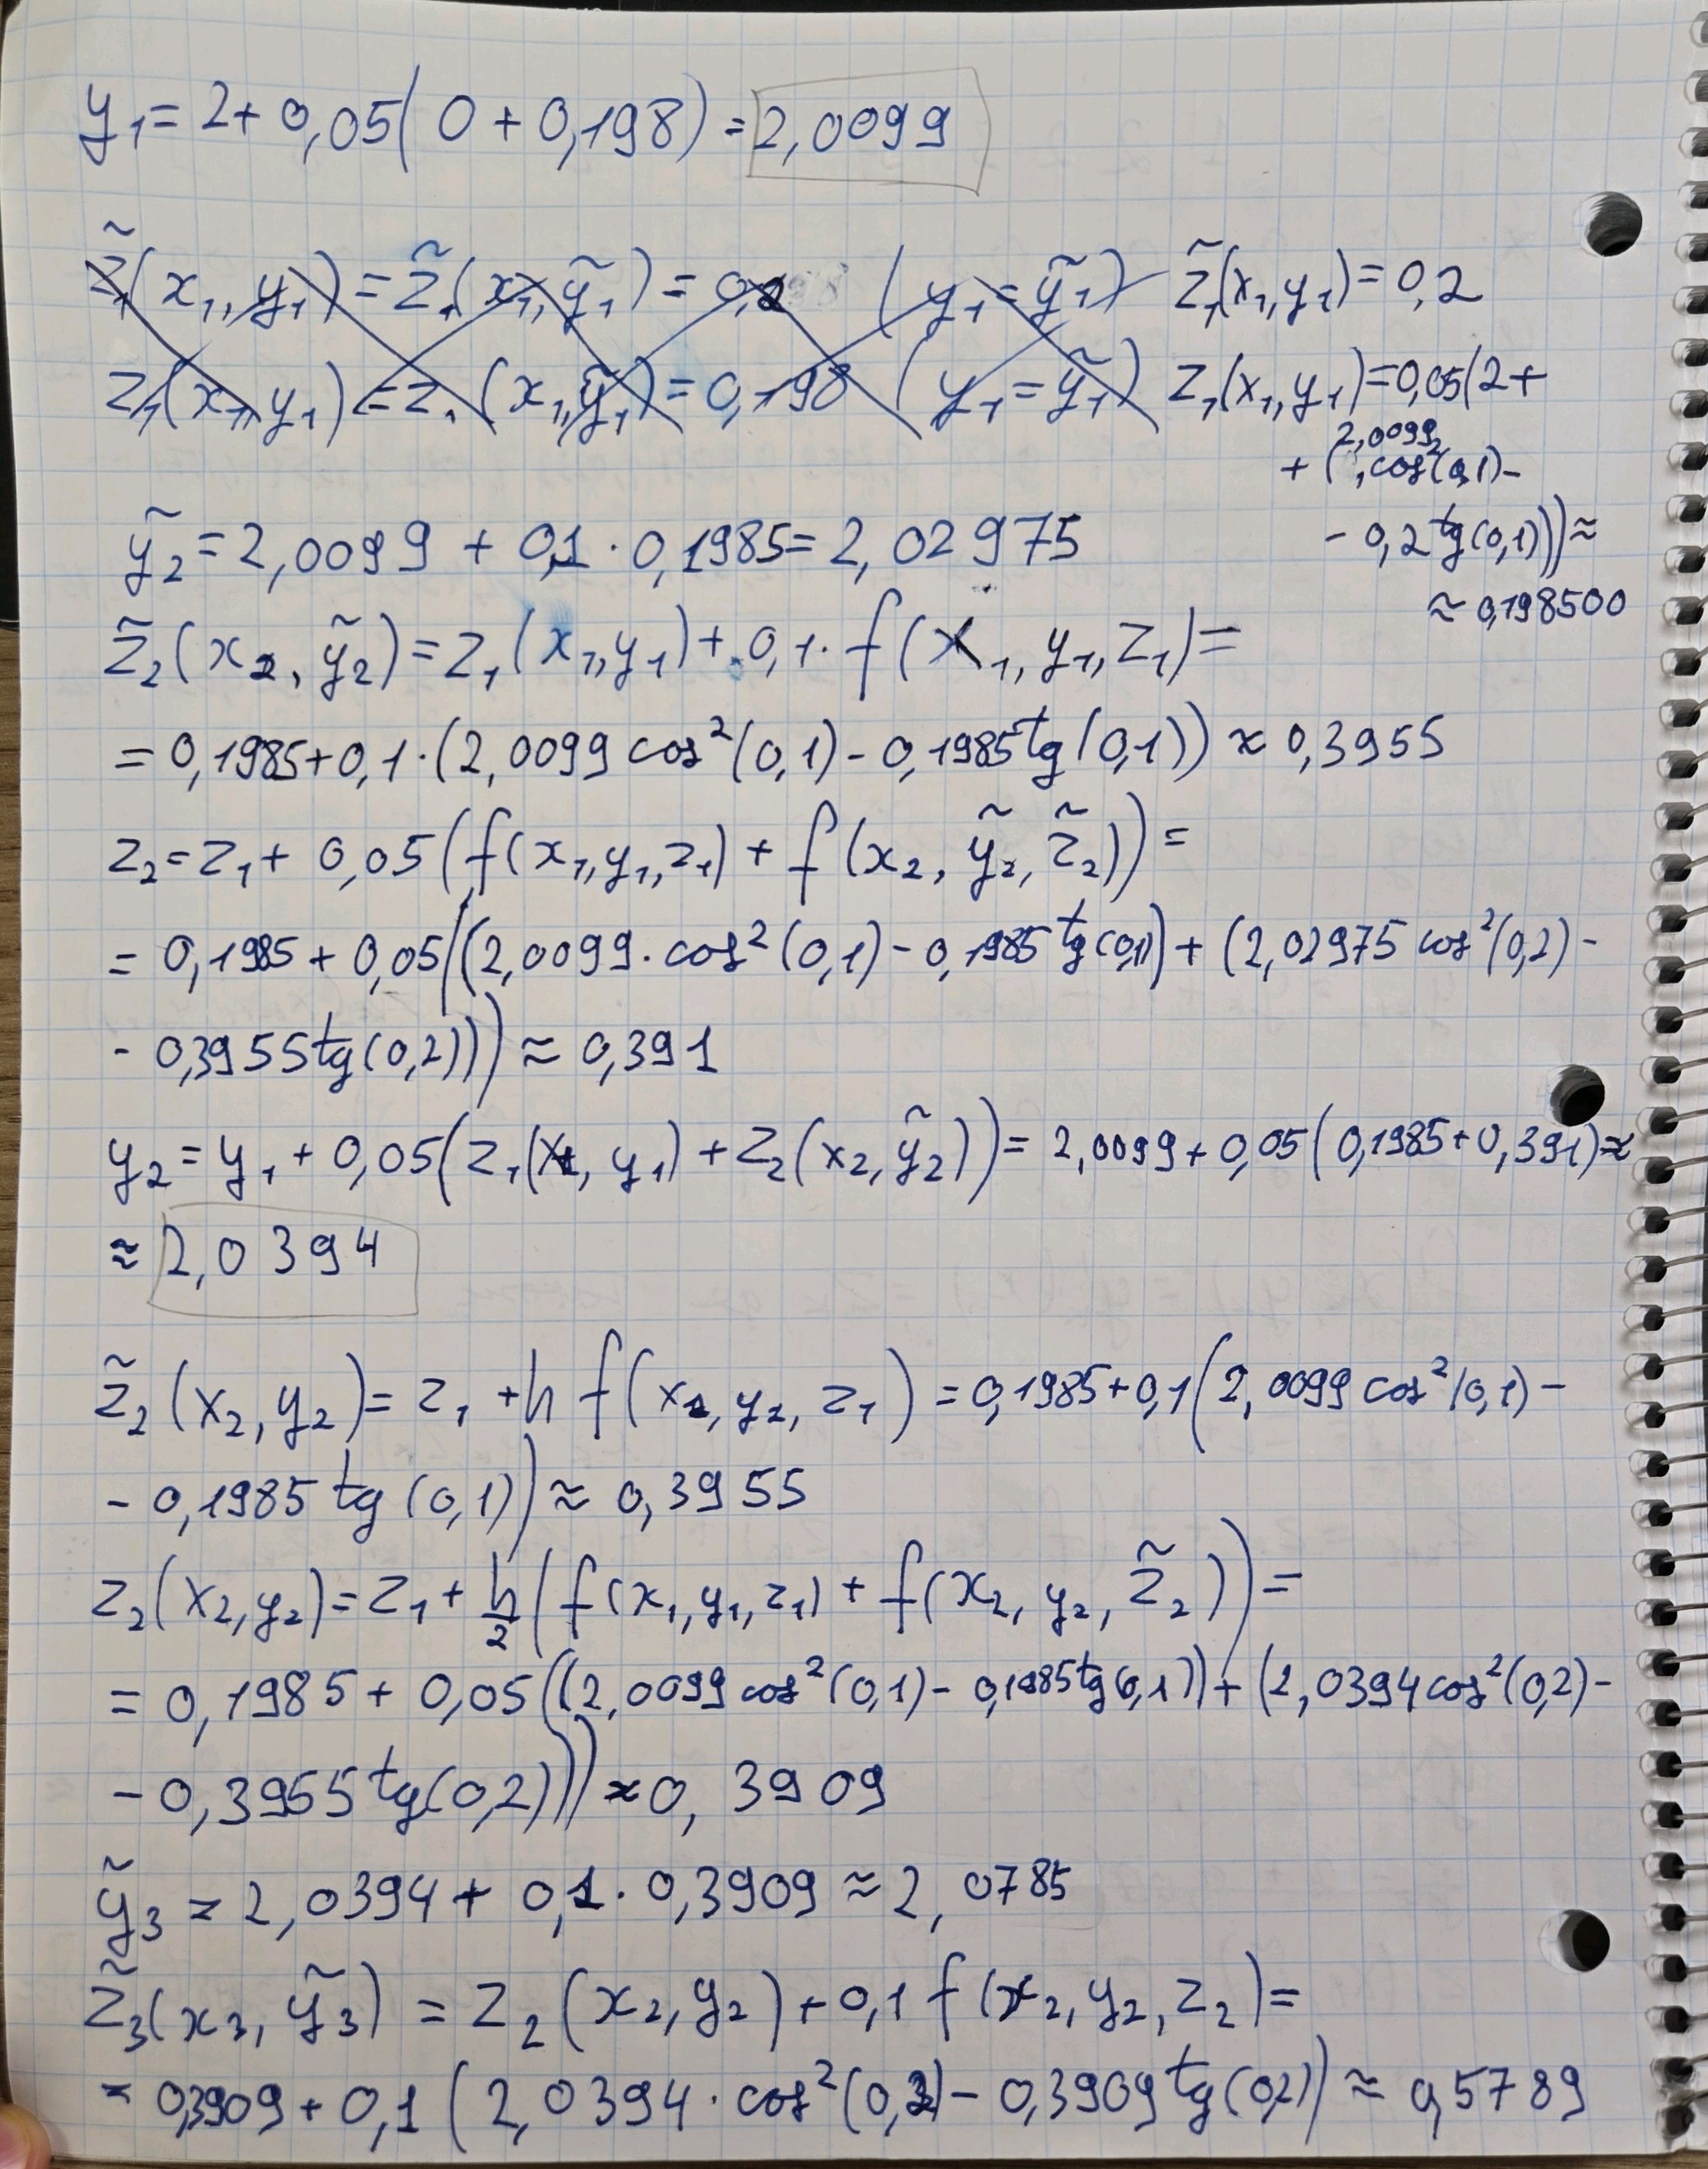 y₁ = 2 + 0,05(0 + 0,198) = 2,0099
z̃₁(x₁, y₁) = z̃₁(x₁, ỹ₁) = 0,2 (y₁ = ỹ₁) z̃₁(x₁, y₁) = 0,2
z₁(x₁, y₁) = z₁(x₁, ỹ₁) = 0,198 (y₁ = ỹ₁) z₁(x₁, y₁) = 0,05(2 +
+ (2,0099, cos²(0,1) -
- 0,2 tg(0,1))) ≈
≈ 0,198500
ỹ₂ = 2,0099 + 0,1 · 0,1985 = 2,02975
z̃₂(x₂, ỹ₂) = z₁(x₁, y₁) + 0,1 · f(x₁, y₁, z₁) =
= 0,1985 + 0,1 · (2,0099 cos²(0,1) - 0,1985 tg(0,1)) ≈ 0,3955
z₂ = z₁ + 0,05(f(x₁, y₁, z₁) + f(x₂, ỹ₂, z̃₂)) =
= 0,1985 + 0,05((2,0099 · cos²(0,1) - 0,1985 tg(0,1)) + (2,02975 cos²(0,2) -
- 0,3955 tg(0,2))) ≈ 0,391
y₂ = y₁ + 0,05(z₁(x₁, y₁) + z₂(x₂, ỹ₂)) = 2,0099 + 0,05(0,1985 + 0,391) ≈
≈ 2,0394
z̃₂(x₂, y₂) = z₁ + h f(x₁, y₁, z₁) = 0,1985 + 0,1(2,0099 cos²(0,1) -
- 0,1985 tg(0,1)) ≈ 0,3955
z₂(x₂, y₂) = z₁ + h/2 (f(x₁, y₁, z₁) + f(x₂, y₂, z̃₂)) =
= 0,1985 + 0,05((2,0099 cos²(0,1) - 0,1985 tg(0,1)) + (2,0394 cos²(0,2) -
- 0,3955 tg(0,2))) ≈ 0,3909
ỹ₃ = 2,0394 + 0,1 · 0,3909 ≈ 2,0785
z̃₃(x₃, ỹ₃) = z₂(x₂, y₂) + 0,1 f(x₂, y₂, z₂) =
= 0,3909 + 0,1 (2,0394 · cos²(0,2) - 0,3909 tg(0,2)) ≈ 0,5789